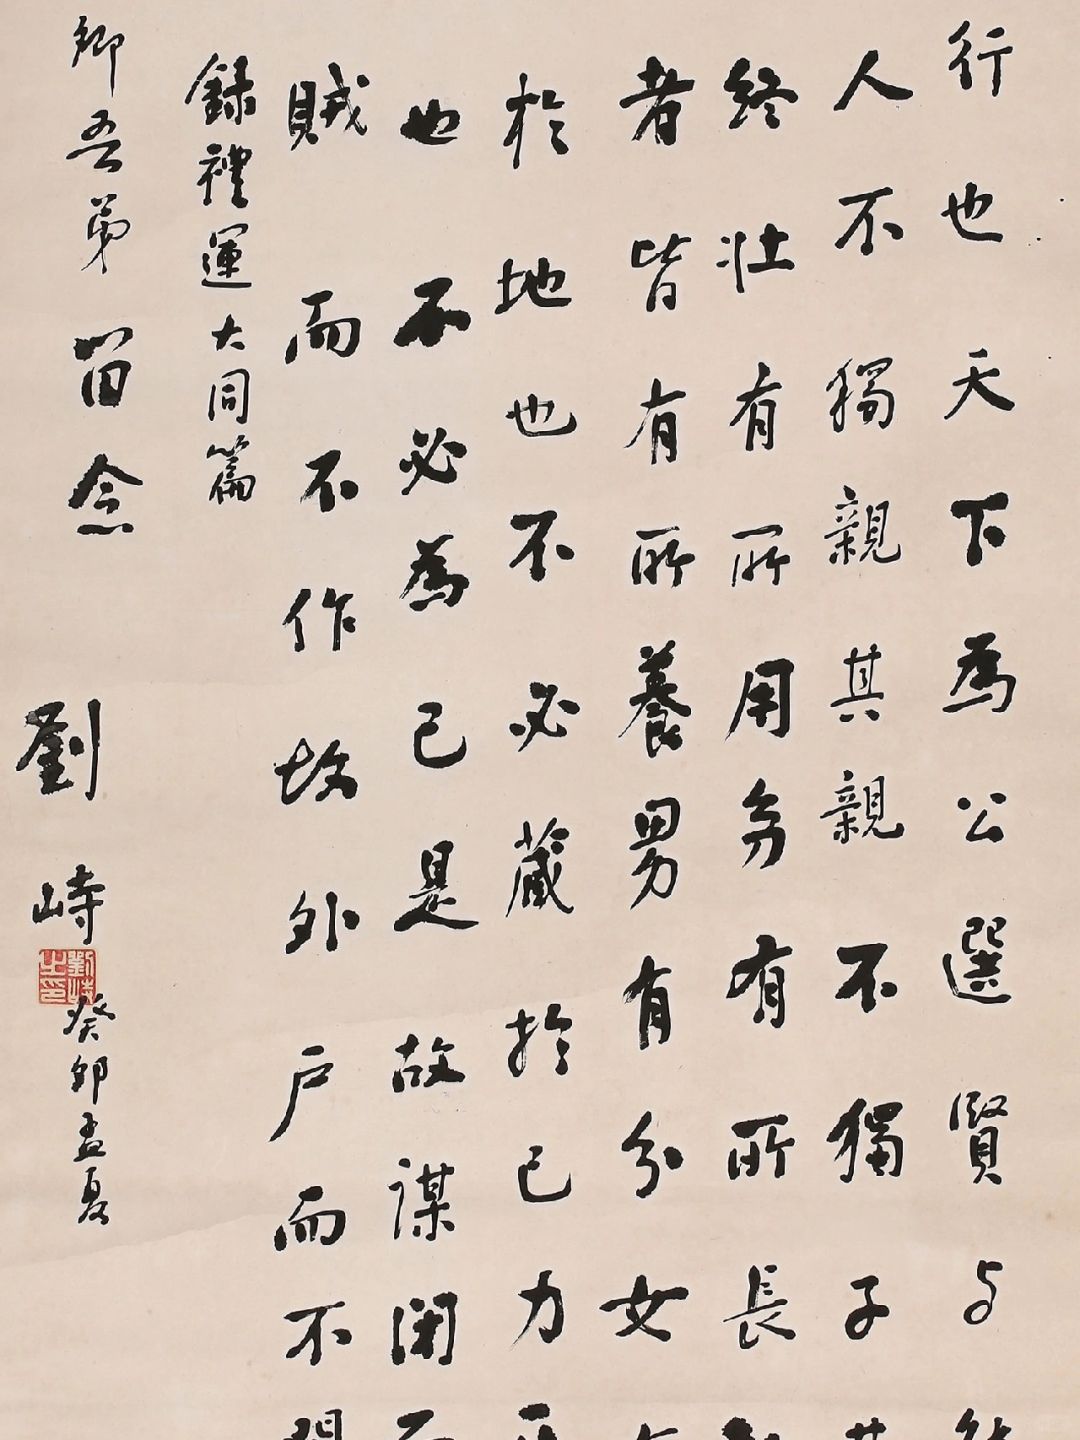 行也天下為公選賢与
人不獨親其親不獨子
終壮有所用矜有所長
者皆有所養男有分女
於地也不必藏於己力
也不必為己是故謀闭
賊而不作故外户而不
錄禮運大同篇
卿吾弟留念
劉峙
劉峙之印
癸卯孟夏